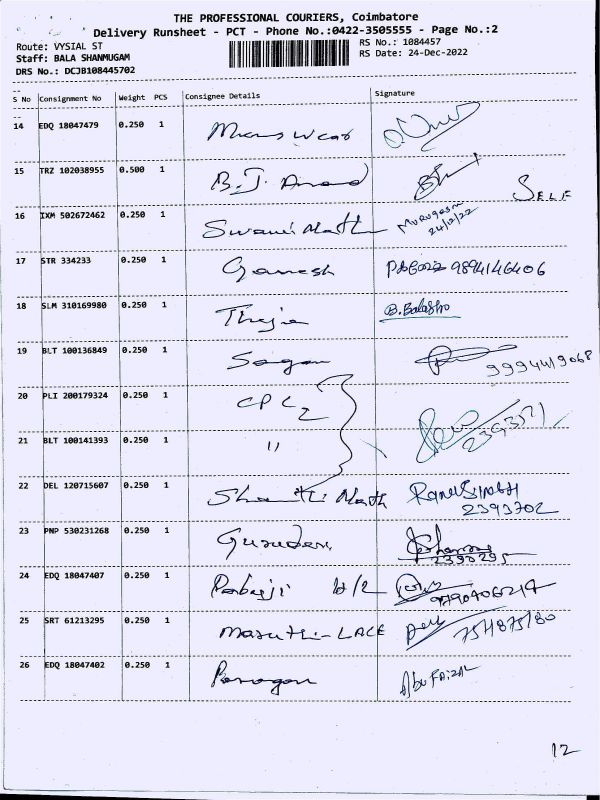 THE PROFESSIONAL COURIERS, Coimbatore
Delivery Runsheet - PCT - Phone No.:0422-3505555 - Page No.:2
Route: VYSIAL ST RS No.: 1084457
Staff: BALA SHANMUGAM RS Date: 24-Dec-2022
DRS No.: DCJB108445702
S No Consignment No Weight PCS Consignee Details Signature
14 EDQ 18047479 0.250 1
15 TRZ 102038955 0.500 1 B.J. Anand SELF
16 IXM 502672462 0.250 1 Swami Math Murugesan
24/12/22
17 STR 334233 0.250 1 Ganesh 9894146406
18 SLM 310169980 0.250 1 B.Balasho
19 BLT 100136849 0.250 1 Sagar 9994419068
20 PLI 200179324 0.250 1 CPL 2
21 BLT 100141393 0.250 1 "
22 DEL 120715607 0.250 1 Shanthi Math
2393702
23 PNP 530231268 0.250 1
2390295
24 EDQ 18047407 0.250 1
25 SRT 61213295 0.250 1 Maruthi-LACE
26 EDQ 18047402 0.250 1 Abu Faizal
12